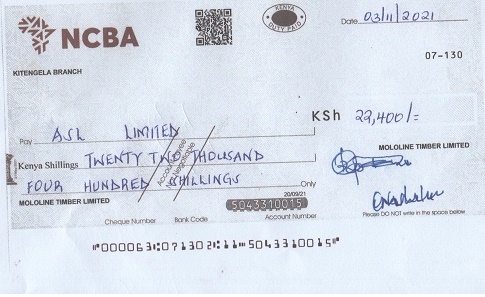 NCBA
KENYA
DUTY PAID
Date 03/11/2021
07-130
KITENGELA BRANCH
KSh 22,400/=
Pay ASL LIMITED
Account Payee
Not Negotiable
MOLOLINE TIMBER LIMITED
Kenya Shillings TWENTY TWO THOUSAND
FOUR HUNDRED SHILLINGS Only
20/09/21
MOLOLINE TIMBER LIMITED
5043310015
Cheque Number Bank Code Account Number
Please DO NOT write in the space below
"000063:071302:11 5043310015"